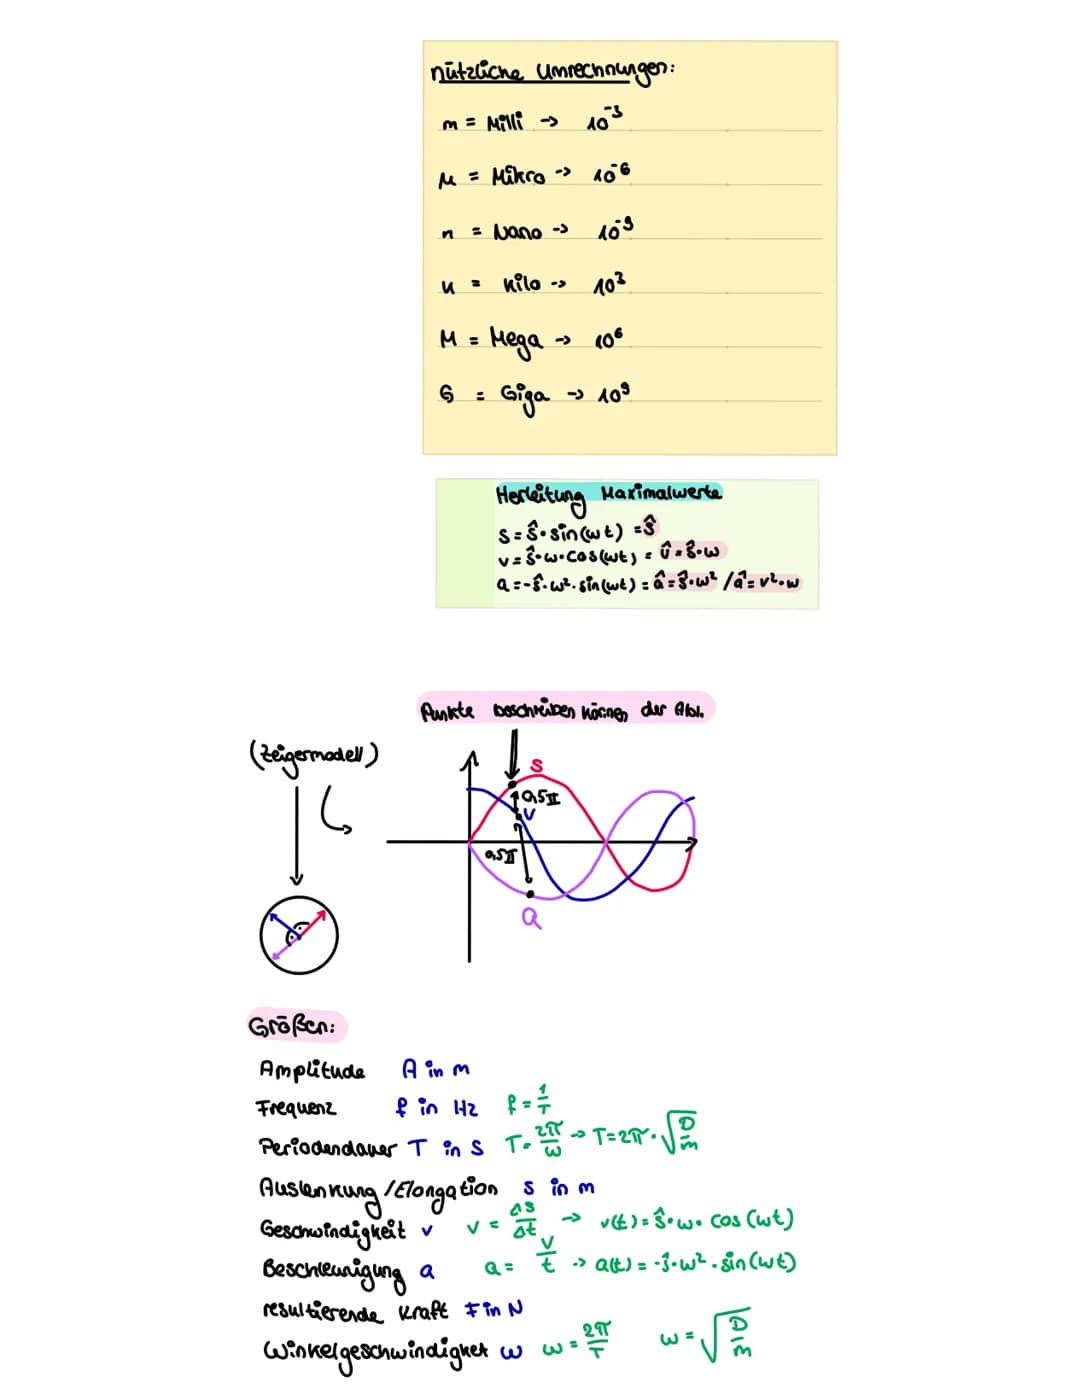 nützliche Umrechnungen:
m = Milli -> 10⁻³
μ = Mikro -> 10⁻⁶
n = Nano -> 10⁻⁹
k = Kilo -> 10³
M = Mega -> 10⁶
G = Giga -> 10⁹
Herleitung Maximalwerte
s = ŝ • sin(ωt) = ŝ
v = ŝ • ω • cos(ωt) = v̂ = ŝ • ω
a = -ŝ • ω² • sin(ωt) = â = ŝ • ω² / â = v² • ω
Punkte beschreiben können der Abb.
(Zeigermodell)
s
0,5π
v
0,5π
a
Größen:
Amplitude A in m
Frequenz f in Hz f = 1/T
Periodendauer T in s T = 2π/ω -> T = 2π • √(D/m)
Auslenkung / Elongation s in m
Geschwindigkeit v v = Δs/Δt -> v(t) = ŝ • ω • cos(ωt)
Beschleunigung a a = v/t -> a(t) = -ŝ • ω² • sin(ωt)
resultierende Kraft F in N
Winkelgeschwindigkeit ω ω = 2π/T ω = √(D/m)